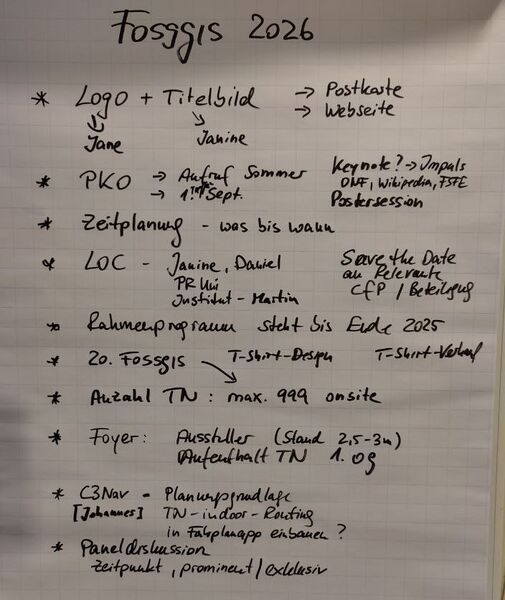 Fossgis 2026
* Logo + Titelbild → Postkarte
→ Webseite
Jane Janine
* PKO → Aufruf Sommer Keynote? → Impuls
→ 1. Sept. OMF, Wikipedia, FSFE
Postersession
* Zeitplanung - was bis wann
* LOC - Janine, Daniel Save the Date
PR Uni an Relevante
Institut - Martin CfP / Beteiligung
* Rahmenprogramm steht bis Ende 2025
* 20. Fossgis T-Shirt-Design T-Shirt-Verkauf
* Anzahl TN : max. 999 onsite
* Foyer: Aussteller (Stand 2,5-3m)
Aufenthalt TN 1. OG
* C3Nav - Planungsgrundlage
[Johannes] TN-indoor-Routing
in Fahrplanapp einbauen ?
* Paneldiskussion
Zeitpunkt, prominent / exklusiv